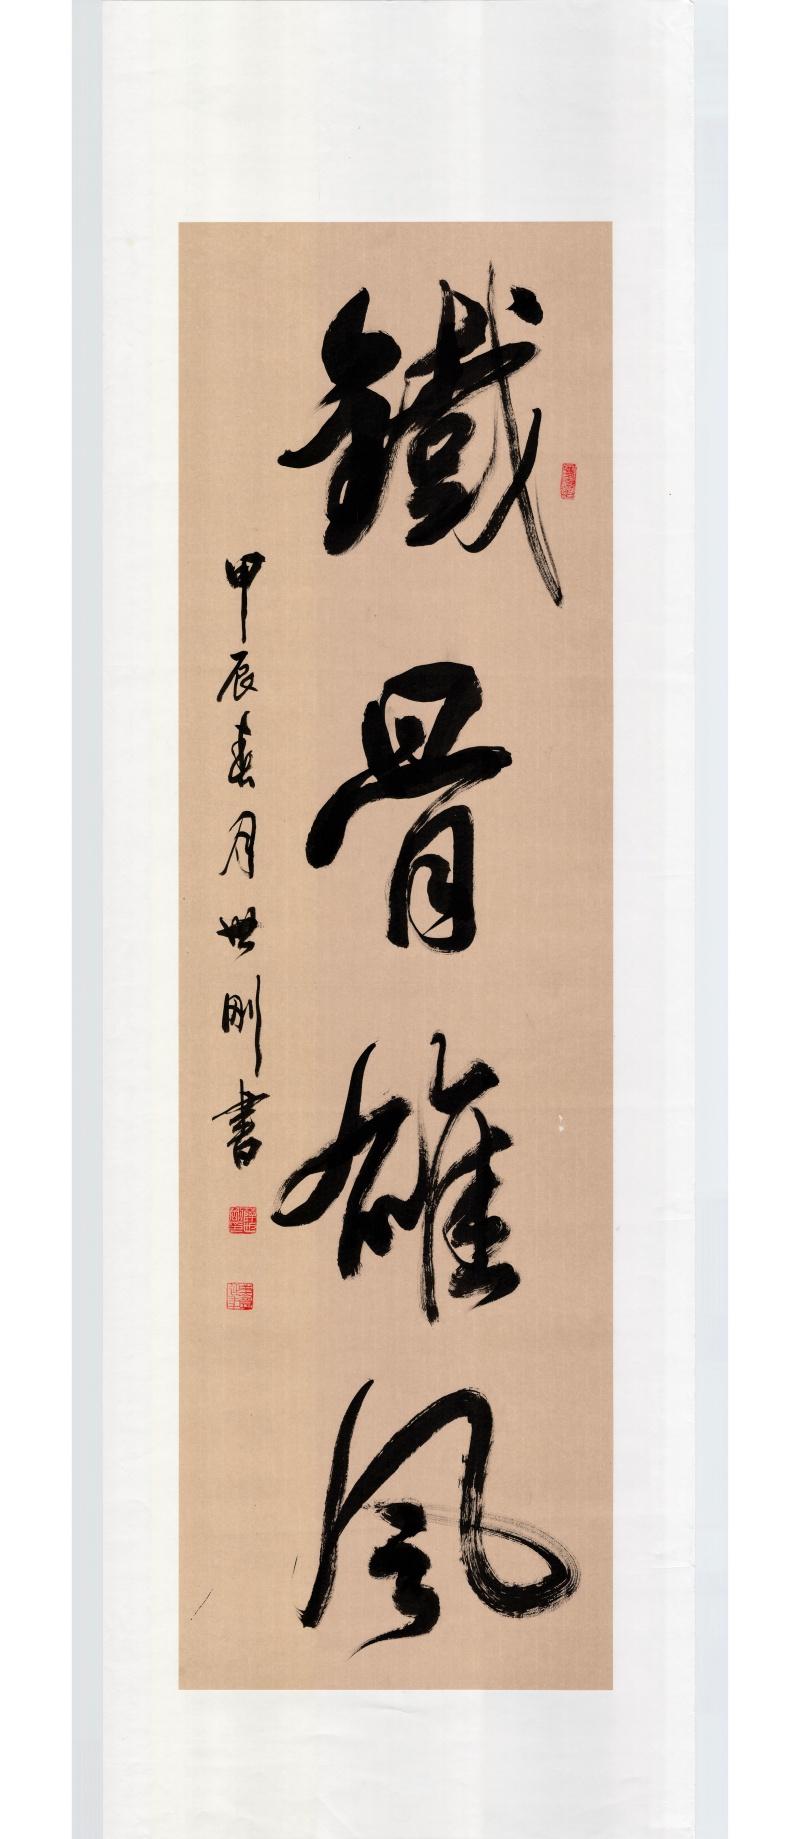 鐵骨雄風
甲辰春月世剛書